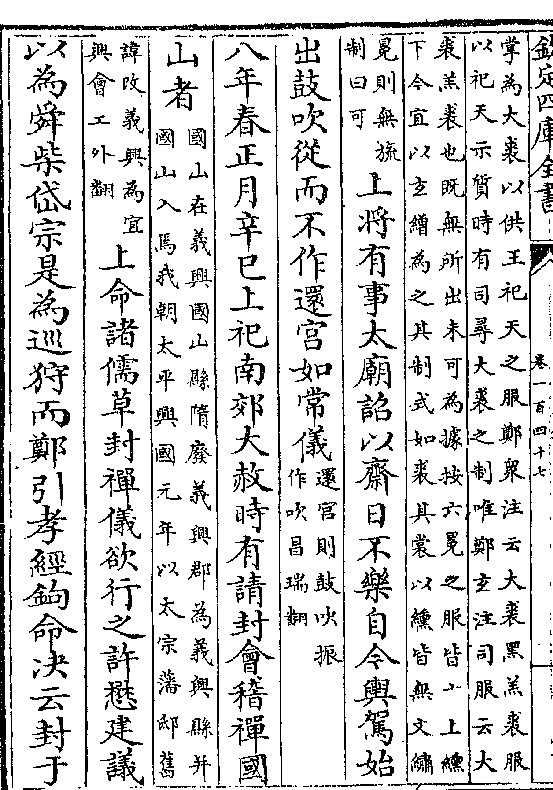 欽定四庫全書
卷一百四十七
掌為大裘以供王祀天之服鄭衆注云大裘黑羔裘服
以祀天示質時有司尋大裘之制唯鄭玄注司服云大
裘羔裘也既無所出未可為據按六冕之服皆玄上纁
下今宜以玄繒為之其制式如裘其裳以纁皆無文繡
冕則無旒
制曰可
上將有事太廟詔以齋日不樂自今輿駕始
出鼓吹從而不作還宮如常儀
還宮則鼓吹振
作吹昌瑞翻
八年春正月辛巳上祀南郊大赦時有請封會稽禪國
山者
國山在義興國山縣隋廢義興郡為義興縣并
國山入焉我朝太平興國元年以太宗藩邸舊
諱改義興為宜
興會工外翻
上命諸儒草封禪儀欲行之許懋建議
以為舜柴岱宗是為巡狩而鄭引孝經鉤命决云封于